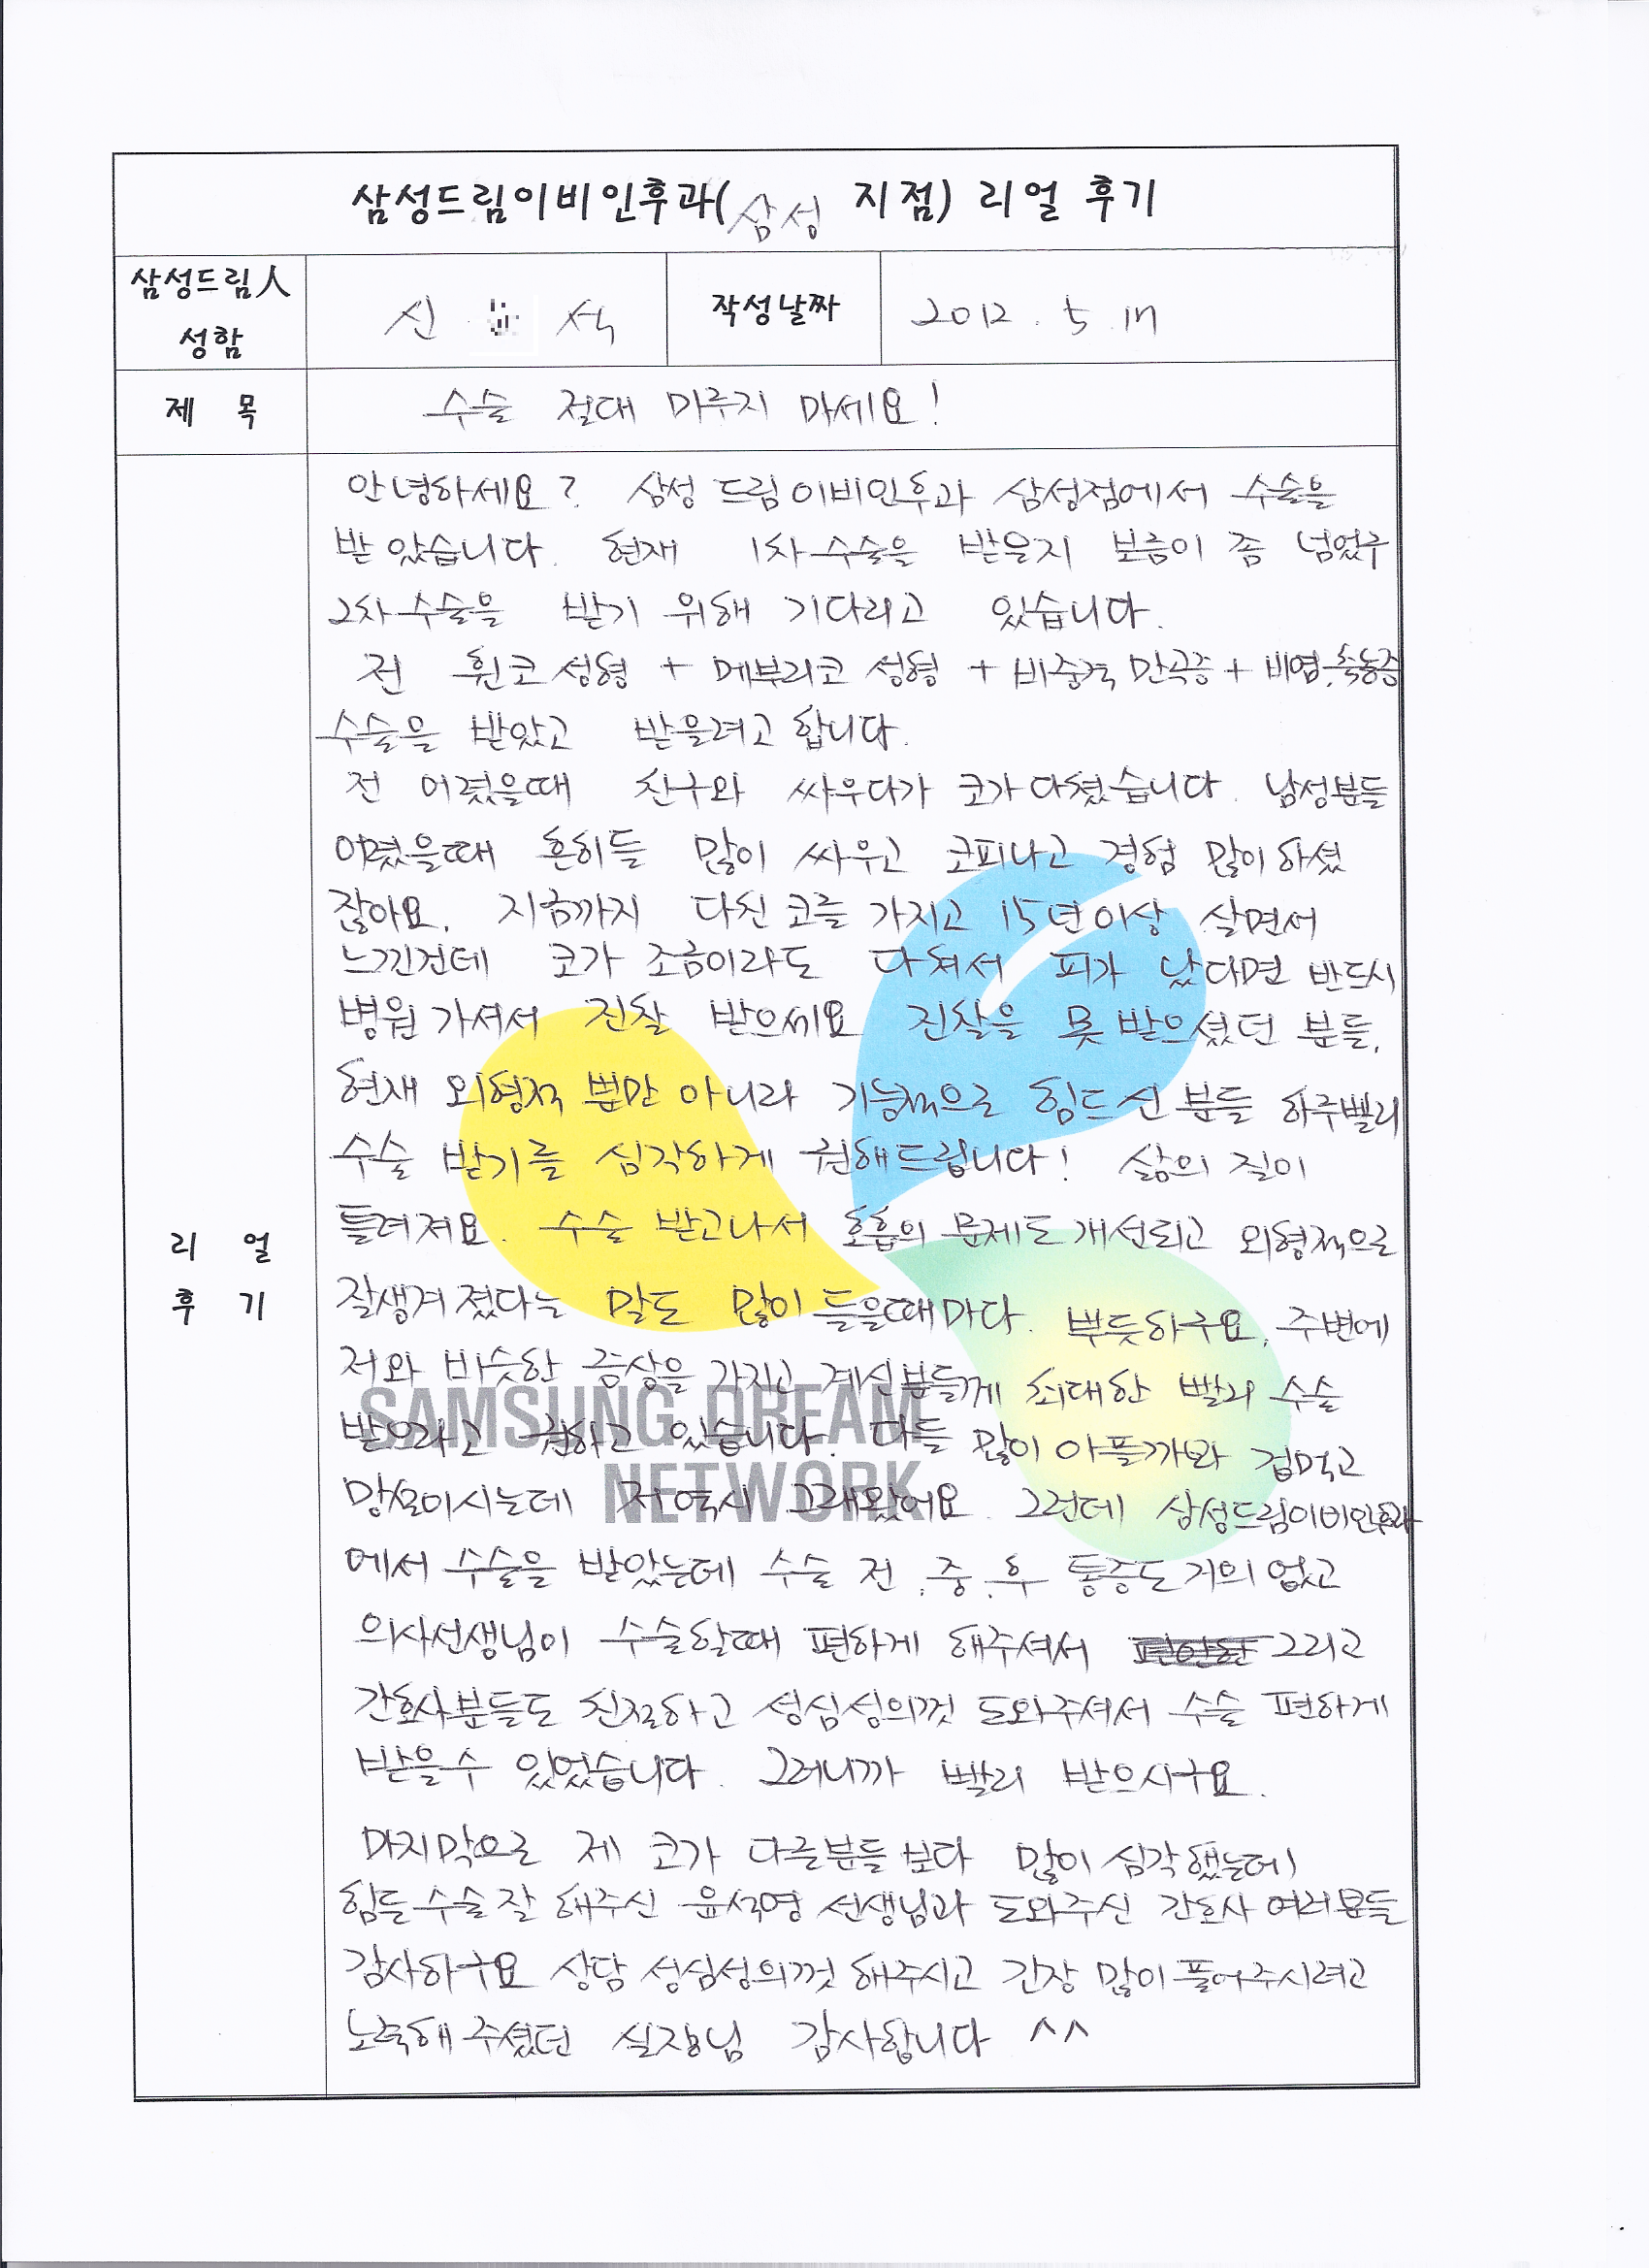 삼성드림이비인후과(삼성 지점) 리얼 후기
삼성드림人
성함
신 석
작성날짜
2012. 5. 17
제 목
수술 절대 미루지 마세요!
리 얼
후 기
안녕하세요? 삼성드림이비인후과 삼성점에서 수술을
받았습니다. 현재 1차수술을 받을지 보름이 좀 넘었구
2차수술을 받기 위해 기다리고 있습니다.
전 휜코성형 + 메부리코 성형 + 비중격 만곡증 + 비염.축농증
수술을 받았고 받을려고 합니다.
전 어렸을때 친구와 싸우다가 코가 다쳤습니다. 남성분들
어렸을때 흔히들 많이 싸우고 코피나고 경험 많이하셨
잖아요. 지금까지 다친 코를 가지고 15년이상 살면서
느낀건데 코가 조금이라도 다쳐서 피가 났다면 반드시
병원가셔서 진찰 받으세요 진찰을 못받으셨던 분들,
현재 외형적 뿐만 아니라 기능적으로 힘드신분들 하루빨리
수술 받기를 심각하게 권해드립니다! 삶의 질이
틀려져요. 수술 받고나서 호흡의 문제도 개선되고 외형적으로
잘생겨졌다는 말도 많이 들을때마다. 뿌듯하구요, 주변에
저와 비슷한 증상을 가지고 계신분들께 최대한 빨리 수술
받으라고 권하고 있습니다. 다들 많이 아플까봐 겁먹고
망설이시는데 저역시 그래왔어요. 그런데 삼성드림이비인후과
에서 수술을 받았는데 수술 전.중.후 통증도 거의 없고
의사선생님이 수술할때 편하게 해주셔서 그리고
간호사분들도 친절하고 성심성의껏 도와주셔서 수술 편하게
받을수 있었습니다. 그러니까 빨리 받으시구요.
마지막으로 제 코가 다른분들보다 많이 심각했는데
힘든수술잘 해주신 윤석영 선생님과 도와주신 간호사 여러분들
감사하구요 상담 성심성의껏 해주시고 긴장 많이풀어주시려고
노력해주셨던 실장님 감사합니다 ^^
SAMSUNG DREAM
NETWORK